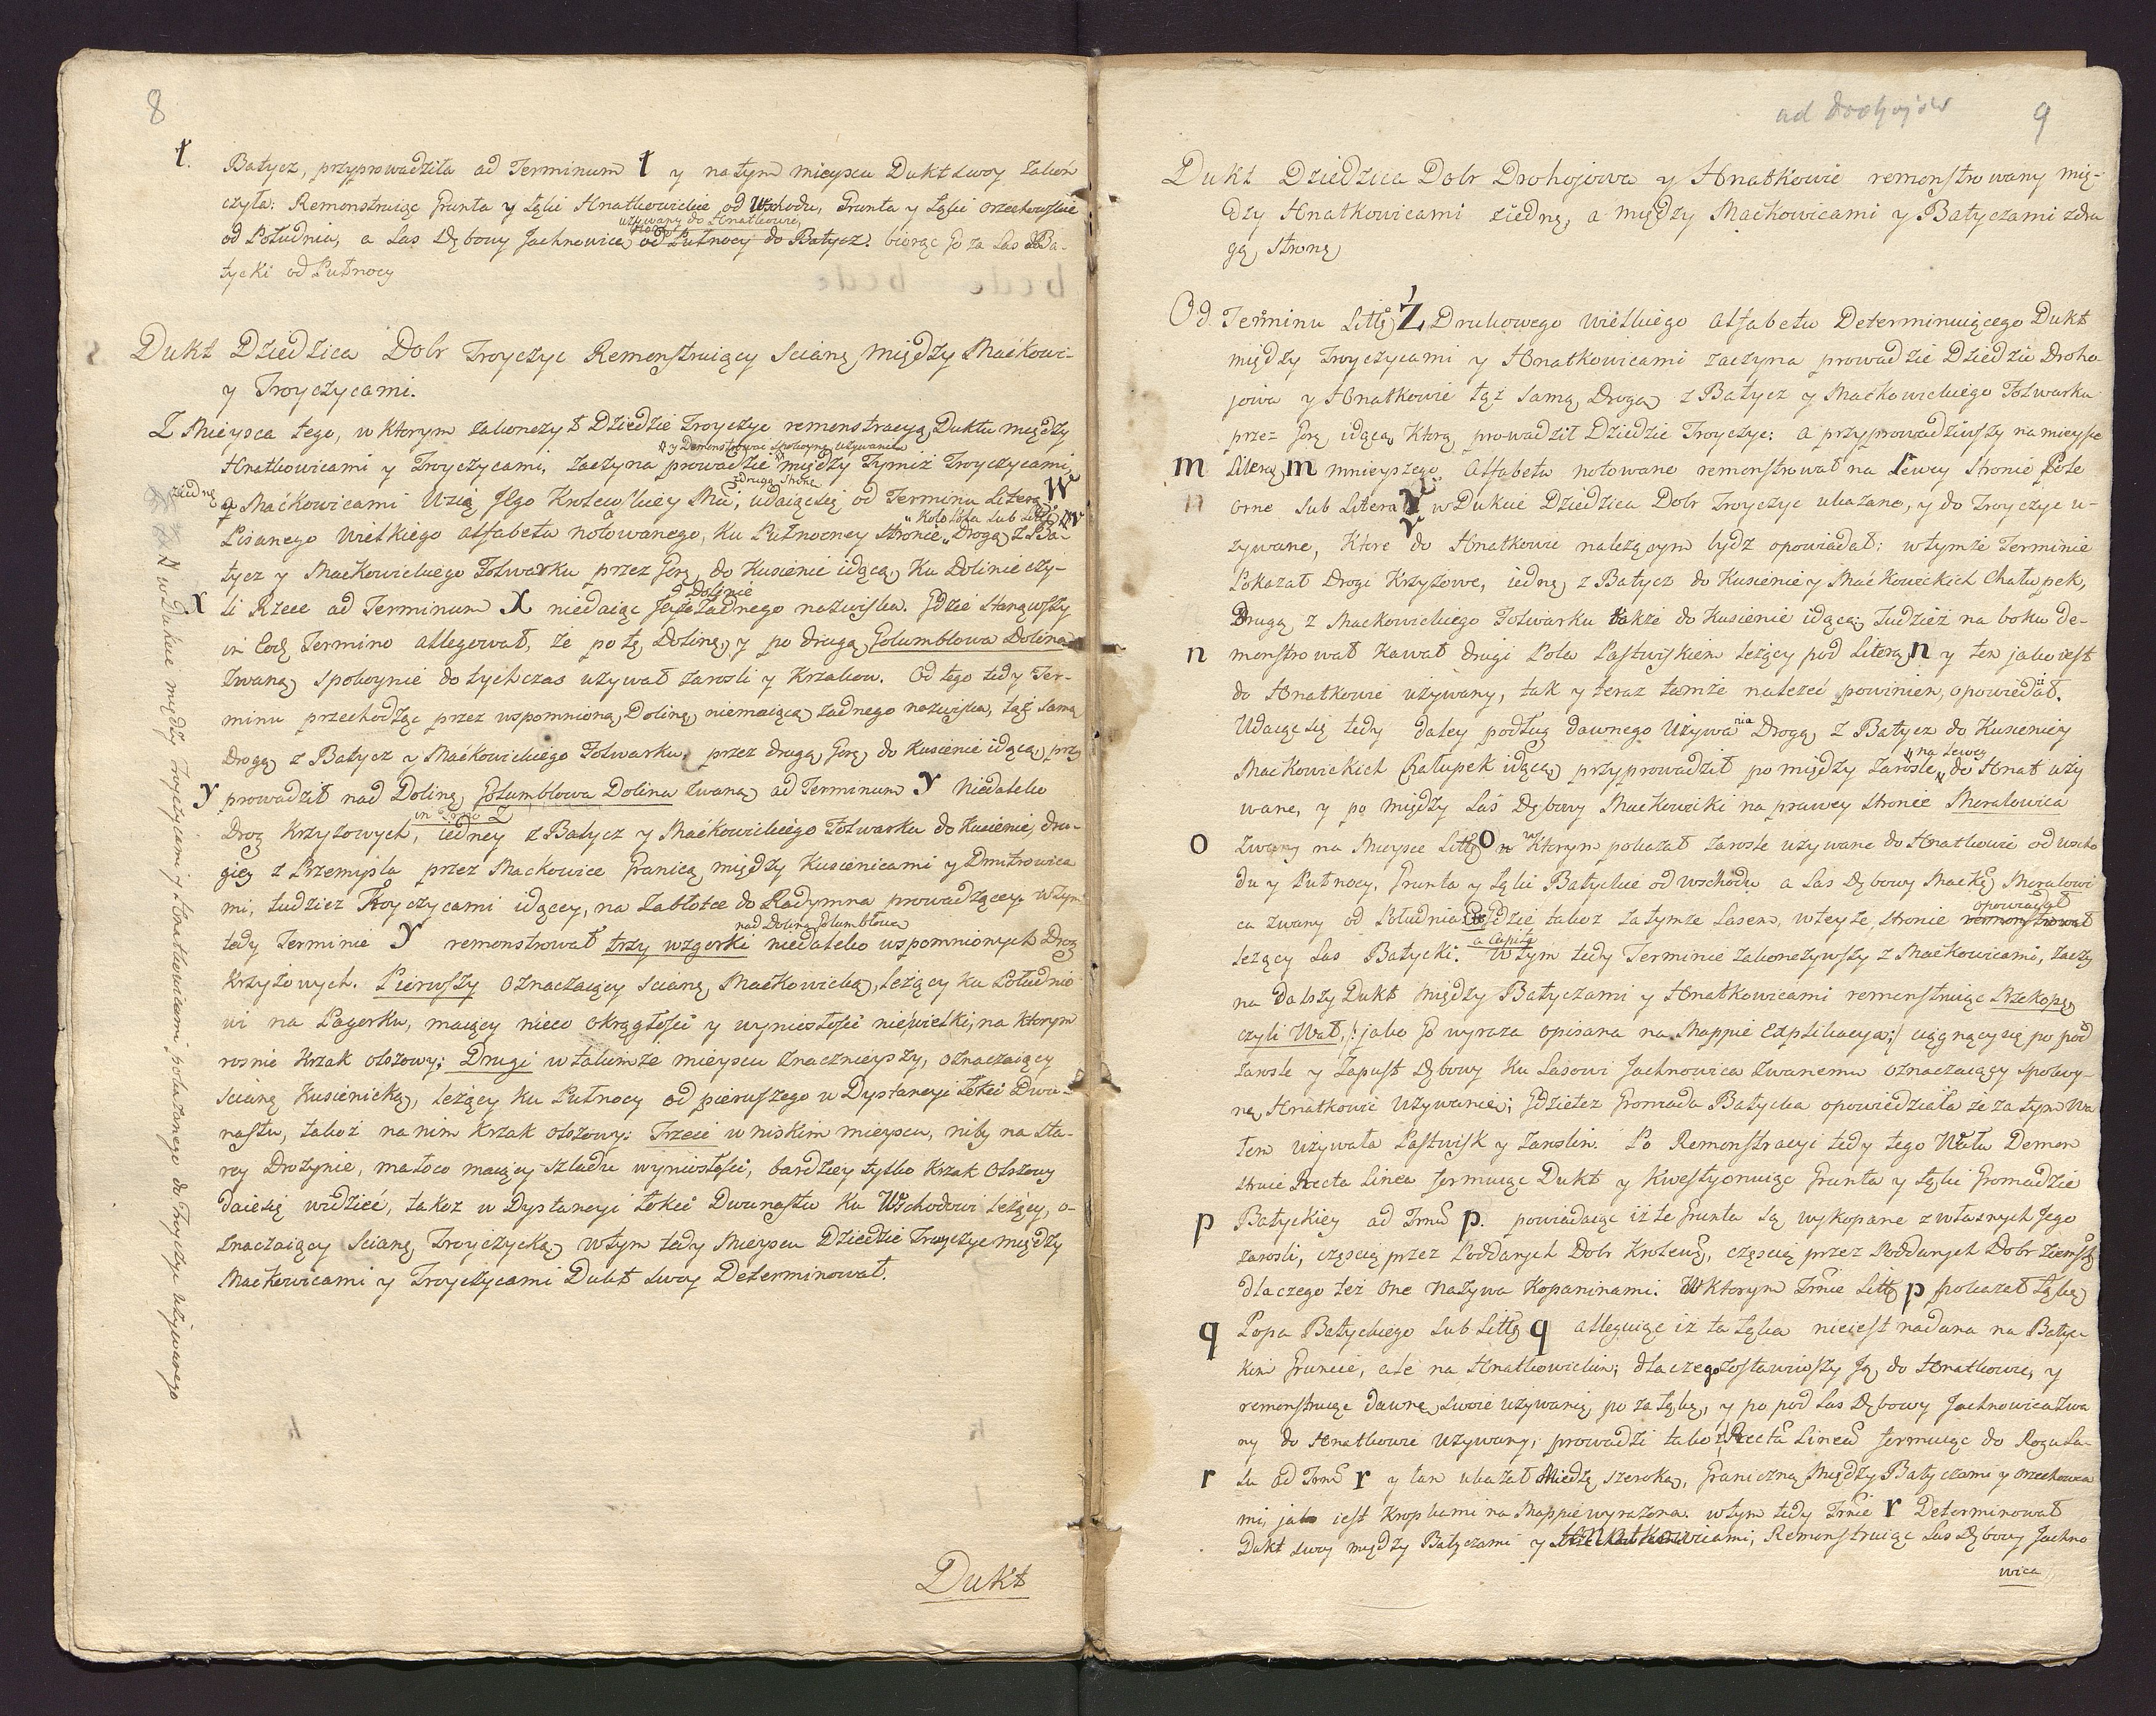 8
t. Batycz, przyprowadziła ad Terminum t y na tym mieyscu Dukt swoy zakoń
czyła: Remonstruiąc Grunta y Łąki Hnatkowickie od Wschodu, Grunta y Łąki Orzechowskie
używany do Hnatkowic,
od Południa, a Las Dębowy Jachnowica od Pułnocy do Batycz. biorąc Go za Las Ba-
tycki od Pułnocy
Dukt Dziedzica Dobr Troyczyc Remonstruiący Scianę między Maćkowi-
y Troyczycami.
Z Mieysca tego, w ktorym zakonczył Dziedzic Troyczyc remonstracyą Duktu między
y Demonstrować spokoyne używanie
Hnatkowicami y Troyczycami, zaczyna prowadzić między Tymiż Troyczycami
z iedney z drugą Stronę
a Maćkowicami Wsią Jego Krolewskiey Mci, udaiąc się od Terminu Literą W
Koło Pola sub Littą W
Pisanego Wielkiego Alfabetu notowanego, Ku Pułnocney Stronie, Drogą z Ba-
tycz y Maćkowickiego Folwarku przez Gorę do Kusienic idącą, Ku Dolinie czy-
Dolinie
X li Rzece ad Terminum X niedaiąc Jeyże żadnego nazwiska. Gdzie stanąwszy
in Eodem Termino allegował, że po tę Dolinę, y po drugą Gołumbłowa Dolina
zwaną spokoynie dotychczas używał Zarosli y Krzakow. Od tego tedy Ter-
minu przechodząc przez wspomnioną Dolinę, niemaiącą żadnego nazwiska, tąż samą
Drogą z Batycz y Maćkowickiego Folwarku. przez drugą Gorę do Kusienic idącą, przy
Y prowadził nad Dolinę Gołumbłowa Dolina zwaną ad Terminum Y Niedaleko
Drog Krzyżowych, iedney z Batycz y Maćkowickiego Folwarku do Kusienic, dru-
giey z Przemysla przez Maćkowice Granicą między Kusienicami y Dmitrowica
mi, tudzież Troyczycami idącey, na Zabłotce do Radymna prowadzącey. W tym
nad Doliną Gołumbłowa
tedy Terminie Y remonstrował trzy wzgorki niedaleko wspomnionych Drog
Krzyżowych. Pierwszy oznaczaiący Scianę Maćkowicką, leżący ku Południo
wi na Pagorku, maiący nieco okrągłości y wyniosłości niewielki, na ktorym
rosnie Krzak olszowy; Drugi w takimże mieyscu znacznieyszy, oznaczaiący
Scianę Kusienicką, leżący ku Pułnocy od pierwszego w Dystancyi Łokci Dwu-
nastu, takoż na nim Krzak olszowy: Trzeci w niskim mieyscu, niby na sta-
rey Drożynie, mało co maiący szladu wyniosłości, bardziey tylko Krzak Olszowy
daie się widzieć, takoz w Dystancyi Łokci Dwunastu Ku Wschodowi leżący, o-
znaczaiący Scianę Troyczycką w tym tedy Mieyscu Dziedzic Troyczyc między
Maćkowicami y Troyczycami Dukt swoy Determinował.
N w Dukcie między Troyczycami y Hnatkowicami pokazanego do Troyczyc używanego
Dukt
ad Drohojow 9
Dukt Dziedzica Dobr Drohojowa y Hnatkowic remonstrowany mię-
dzy Hnatkowicami ziedną, a między Maćkowicami y Batyczami z dru
gą Stroną
Od Terminu Littą Ż Drukowego Wielkiego Alfabetu Determinuiącego Dukt
między Troyczycami y Hnatkowicami zaczyna prowadzić Dziedzic Droho
jowa y Hnatkowic tąż samą Drogą z Batycz y Maćkowickiego Folwarku
przez Gorę idącą, Ktorą prowadził Dziedzic Troyczyc: a przyprowadziwszy na mieysce
m Literą m mnieyszego Alfabetu notowane remonstrował na Lewey Stronie Pole
n orne sub Litera w Dukcie Dziedzica Dobr Troyczyc ukazane, y do Troyczyc u-
żywane, Ktore do Hnatkowic należącym bydz opowiadał: w tymże Terminie
Pokazał Drogi Krzyżowe, iedną z Batycz do Kusienic y Maćkowickich Chałupek,
Drugą z Maćkowickiego Folwarku także do Kusienic idącą; Tudzież na boku de-
n monstrował Kawał drugi Pola Pastwiskiem leżący pod Literą n y ten jako iest
do Hnatkowic używany, tak y teraz tamże należeć powinien, opowiedał.
Udaiąc się tedy daley podług dawnego Używania Drogą z Batycz do Kusienicy
na Lewey
Maćkowickich Chałupek idącą, przyprowadził pomiędzy Zarosle, do Hnat uży
wane, y po między Las Dębowy Maćkowicki na prawey stronie Moralowica
o Zwany na Mieysce Littą o w Ktorym pokazał Zarosle używane do Hnatkowic od wscho
du y Pułnocy, Grunta y Łąki Batyckie od wschodu a Las Dębowy Maćk Moralowi
opowiadał
ca zwany od Południa. Gdzie takoż za tymże Lasem, w teyże stronie remonstrował
a Capite
leżący Las Batycki. W tym tedy Terminie zakonczywszy z Maćkowicami, zaczy
na dalszy Dukt między Batyczami y Hnatkowicami remonstruiąc Przekopę
czyli Wał, /: jako Go wyraza opisana na Mappie Explikacya :/ ciągnący się po pod
Zarosle y Zapust Dębowy Ku Lasowi Jachnowica Zwanemu oznaczaiący spokoy-
ne Hnatkowic Używanie; Gdzie też Gromada Batycka opowiedziała że za tym Wa
łem używała Pastwisk y Zaroslin. Po Remonstracyi tedy tego Wału Demon
struie Recta Linea formuiąc Dukt y Kwestyonuiąc Grunta y Łąki Gromadzie
p Batyckiey ad Trmū p. powiadaiąc iż te Grunta są wykopane z własnych Jego
Zarosli, częscią przez Poddanych Dobr Krolew, częscią przez Poddanych Dobr Ziemsk
dlaczego też one Nazywa Kopaninami. W ktorym Trmie Littą p pokazał Łąkę
q Popa Batyckiego sub Littą q alleguiąc iż ta Łąka nieiest nadana na Batyc
kim Gruncie, ale na Hnatkowickim; dlaczego zostawiwszy Ją do Hnatkowic, y
remonstruiąc dawne swoie używanie, po za Łąkę, y po pod Las Dębowy Jachnowica Zwa
ny do Hnatkowic używany, prowadzi takoż Recta Linea formuiąc do Rogu La-
r su ad Trmū r y tam ukazał Miedzę szeroką, Graniczną Między Batyczami y Orzechowca
mi, jako iest Kropkami na Mappie wyrażona. w tym tedy Trmie r Determinował
Dukt swoy między Batyczami y Hnatkowicami, Remonstruiąc Las Dębowy Jachno
wica